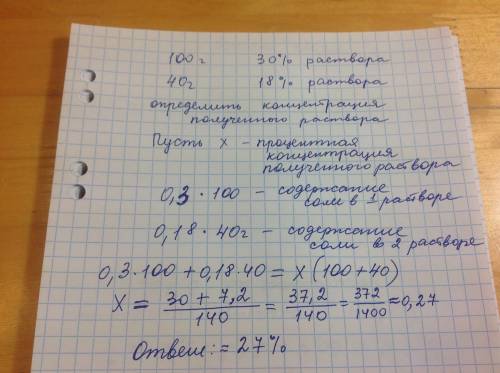 100г 30% раствора
40г 18% раствора
определить концентрация
полученного раствора
Пусть x – процентная
концентрация
полученного раствора
0,3 · 100 – содержание
соли в 1 растворе
0,18 · 40г – содержание
соли в 2 растворе
0,3·100 + 0,18·40 = X (100+40)
X = (30 + 7,2)/140 = 37,2/140 = 372/1400 ≈ 0,27
Ответ: ≈ 27%